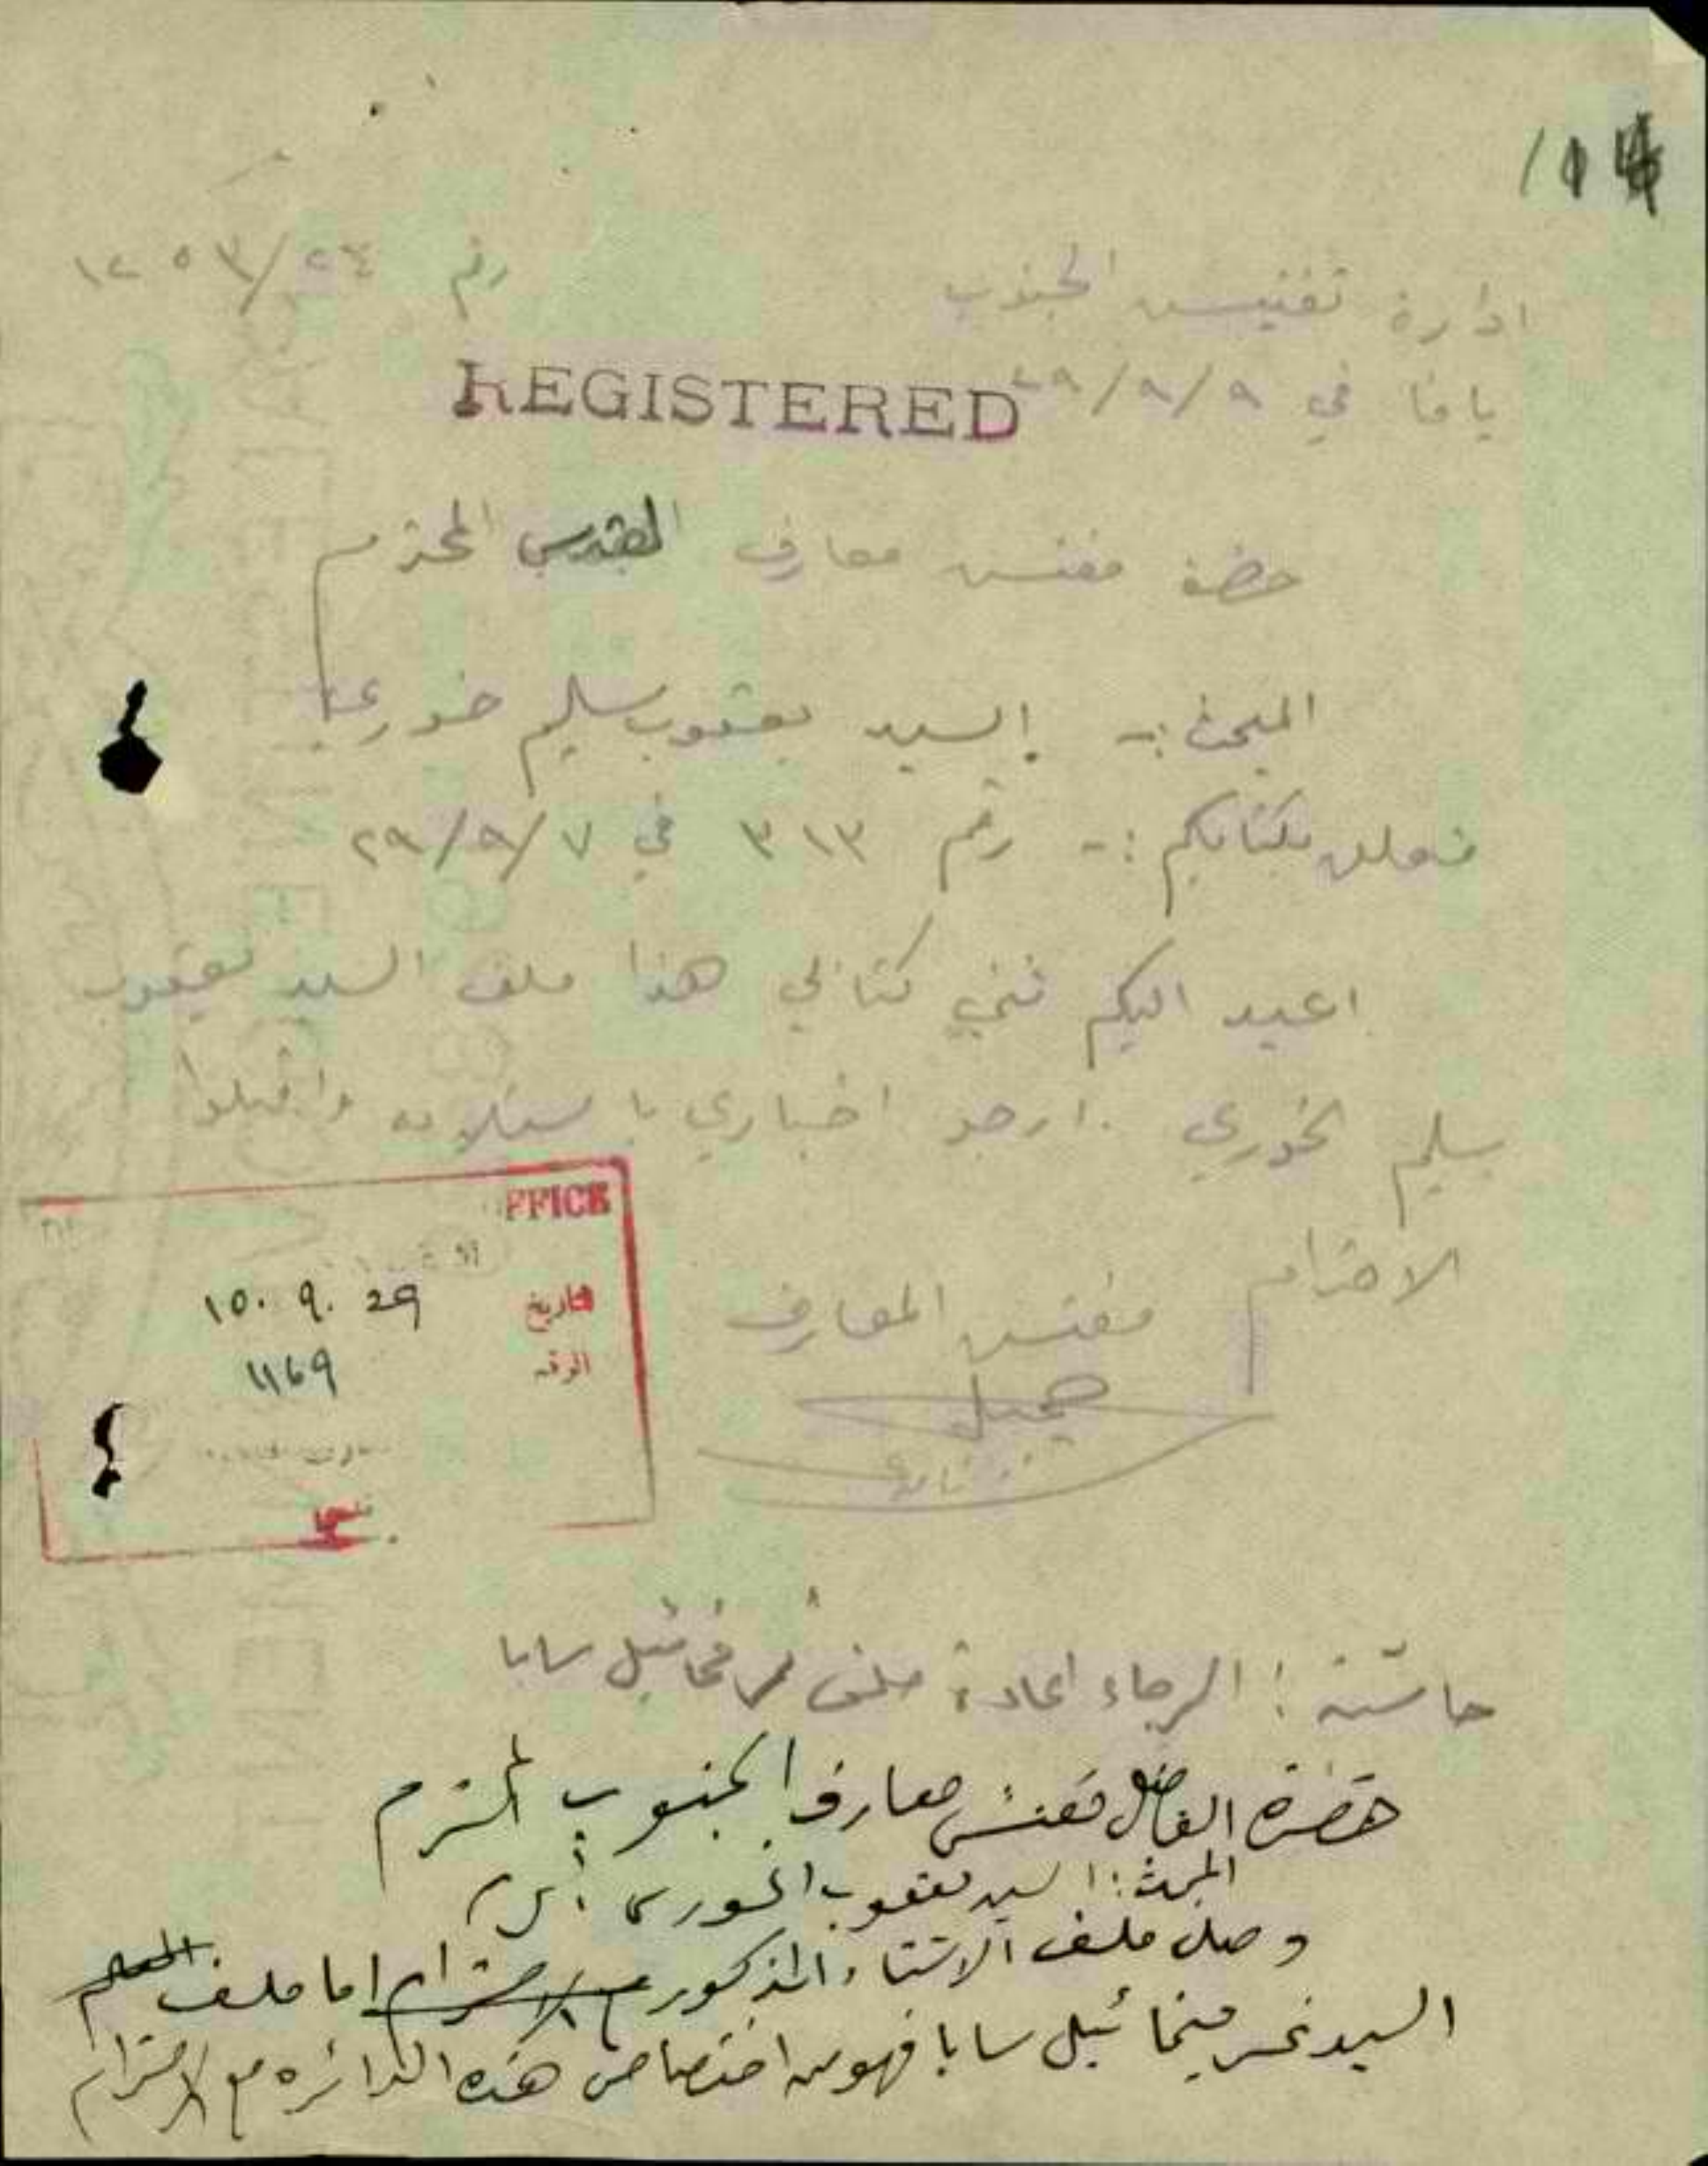 ادارة تفتيش الجنوب
رقم ٢٤/١٢٥٣
يافا في ٩/٩/٢٩
REGISTERED
حضرة مفتش معارف القدس المحترم
المبحث :- السيد يعقوب سليم خوري
تعلق بكتابكم :- رقم ٣١٣ في ٧/٩/٢٩
اعيد اليكم ضمن كتابي هذا ملف السيد يعقوب
سليم الخوري . ارجو اخباري باستلامه واقبلوا
الاحترام
مفتش المعارف
FFICE
تاريخ 10. 9. 29
الورقه 1169
حاشية : الرجاء اعادة ملف نمر مخائيل سابا
حضرة الفاضل مفتش معارف الجنوب المحترم
المبحث : السيد يعقوب الخوري
وصل ملف الاستاذ المذكور مع الاحترام اما ملف المعلم
السيد نمر ميخائيل سابا فهو من اختصاص هذه الدائره مع الاحترام